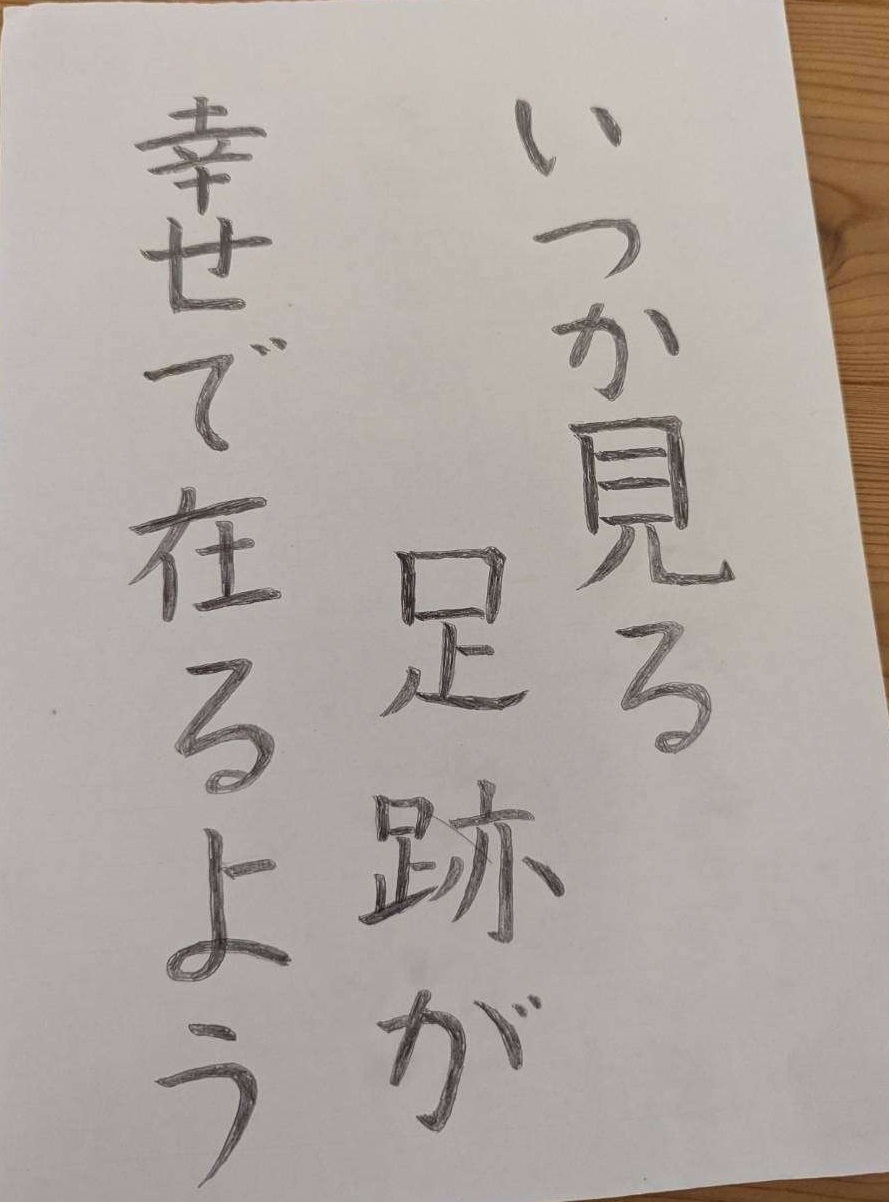 いつか見る
足跡が
幸せで在るよう